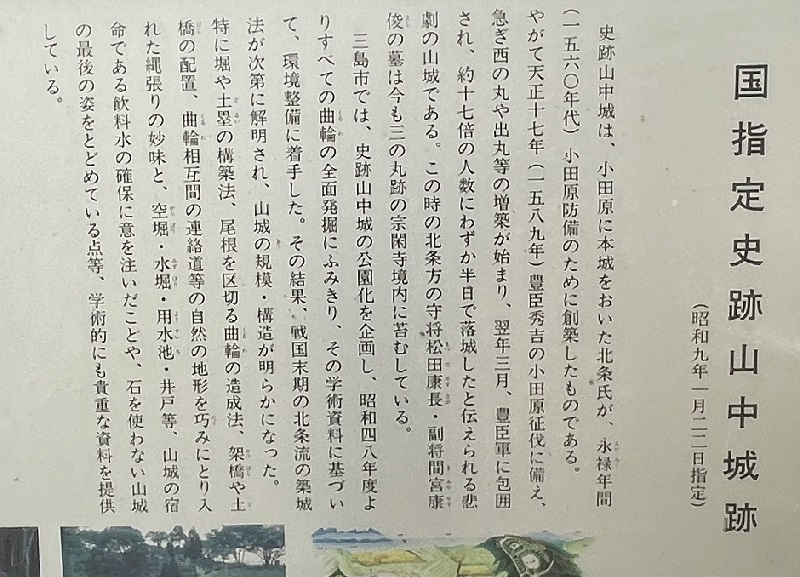 国指定史跡山中城跡
（昭和九年一月二二日指定）
史跡山中城は、小田原に本城をおいた北条氏が、永禄年間
（一五六〇年代）小田原防備のために創築したものである。
やがて天正十七年（一五八九年）豊臣秀吉の小田原征伐に備え、
急ぎ西の丸や出丸等の増築が始まり、翌年三月、豊臣軍に包囲
され、約十七倍の人数にわずか半日で落城したと伝えられる悲
劇の山城である。この時の北条方の守将松田康長・副将間宮康
俊の墓は今も三の丸跡の宗閑寺境内に苔むしている。
三島市では、史跡山中城の公園化を企画し、昭和四八年度よ
りすべての曲輪の全面発掘にふみきり、その学術資料に基づい
て、環境整備に着手した。その結果、戦国末期の北条流の築城
法が次第に解明され、山城の規模・構造が明らかになった。
特に堀や土塁の構築法、尾根を区切る曲輪の造成法、架橋や土
橋の配置、曲輪相互間の連絡道等の自然の地形を巧みにとり入
れた縄張りの妙味と、空堀・水堀・用水池・井戸等、山城の宿
命である飲料水の確保に意を注いだことや、石を使わない山城
の最後の姿をとどめている点等、学術的にも貴重な資料を提供
している。